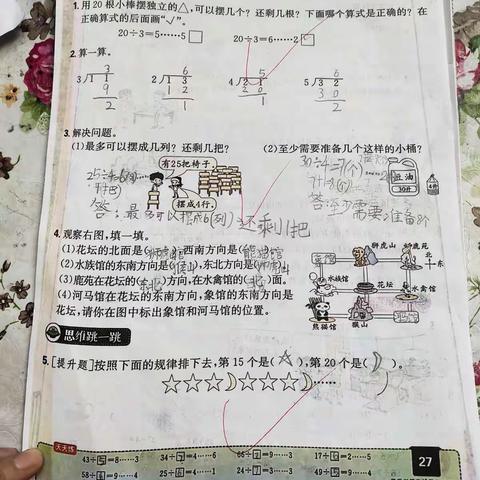 1. 用 20 根小棒摆独立的△,可以摆几个?还剩几根?下面哪个算式是正确的?在
正确算式的后面画“√”。
20÷3=5……5□ 20÷3=6……2□
2. 算一算。
3
3)1 1
9
2
6
2)1 3
1 2
1
5
4)2 1
2 0
1
6
5)3 2
3 0
2
3. 解决问题。
(1)最多可以摆成几列?还剩几把?
(2)至少需要准备几个这样的小桶?
有25把椅子。
摆成4行。
豆油
30升
4升
30÷4=7(个)
答:最多可以摆成6(列)还剩1把
答:至少需要准备8个
4. 观察右图,填一填。
(1)花坛的北面是( ),西南方向是(熊猫馆)。
(2)水族馆的东南方向是(猴山),东北方向是( )。
(3)鹿苑在花坛的(东北)方向,在水禽馆的(北)面。
(4)河马馆在花坛的东南方向,象馆的东南方向是
花坛,请你在图中标出象馆和河马馆的位置。
狮虎山 鹿苑
北
东
水族馆 花坛 水禽馆
熊猫馆 猴山
思维跳一跳
5. [提升题]按照下面的规律排下去,第 15 个是(☆),第 20 个是( )。
☆☆☆ ☆☆☆ ……
天天练
43÷5=8……3 34÷7=4……6 66÷7=9……3 17÷6=2……5
58÷6=9……4 25÷6=4……1 24÷7=3……3 49÷5=9……4
27